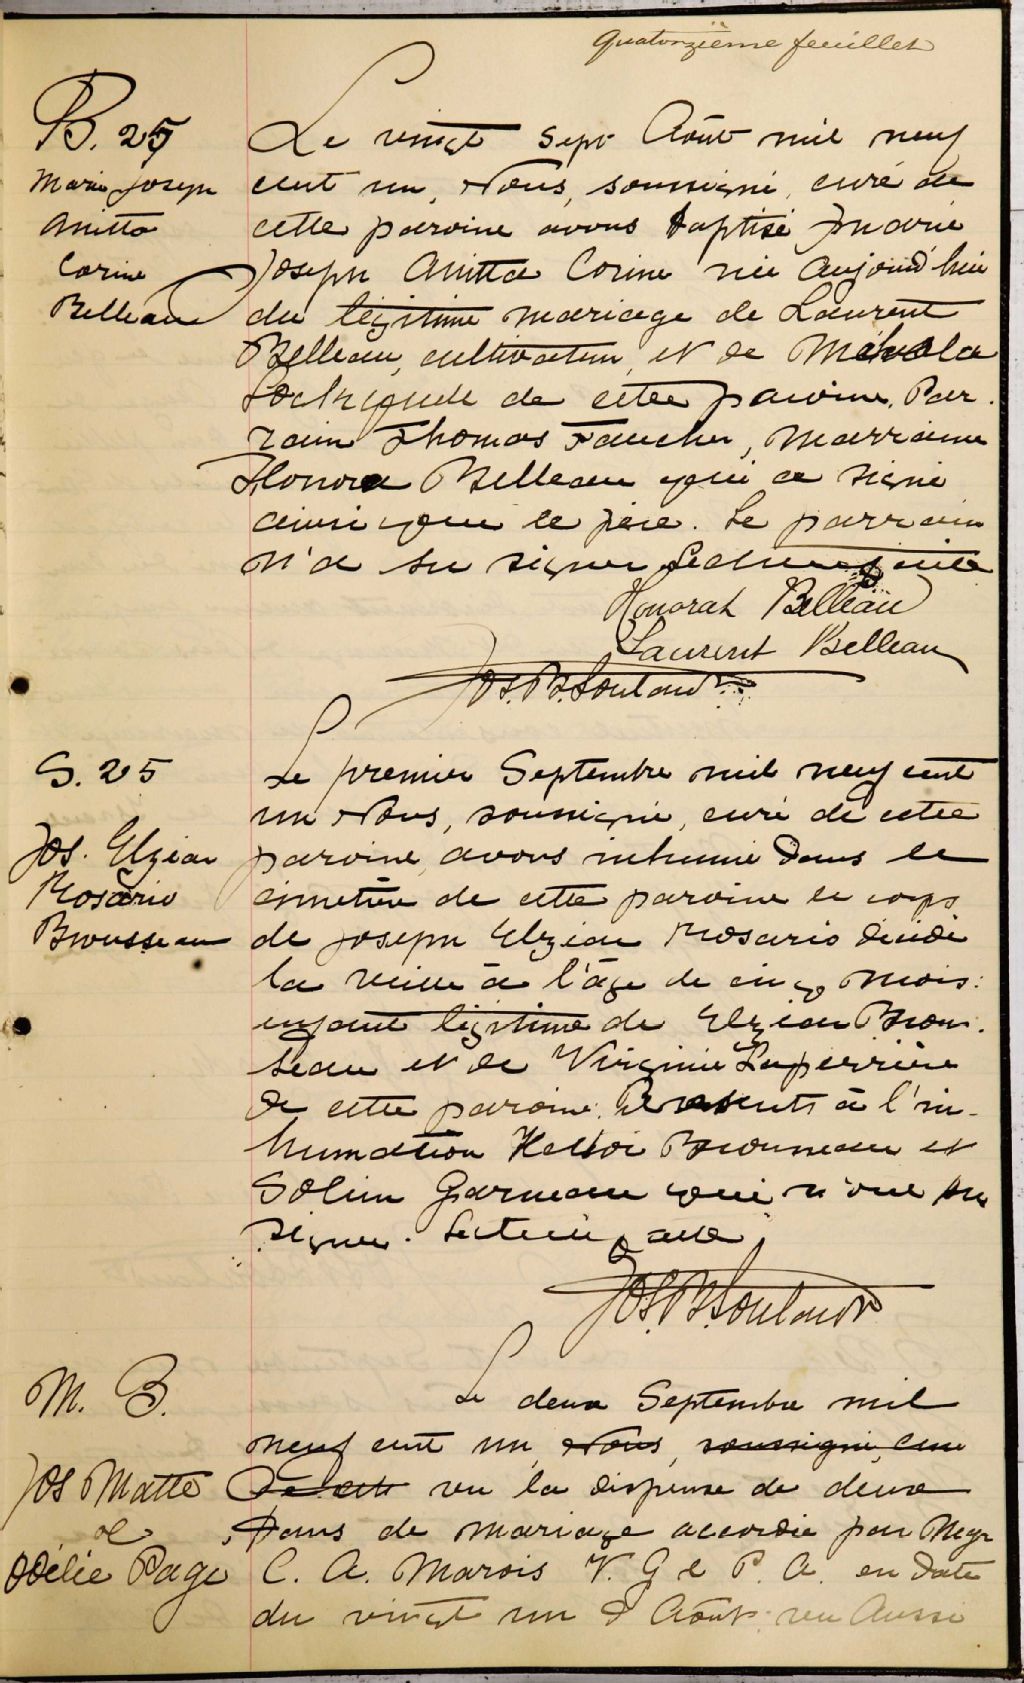 Quatorzième feuillet
B. 25
Marie Joseph
Anitta
Corine
Belleau
Le vingt sept Août mil neuf
cent un, Nous, soussigné, curé de
cette paroisse avons baptisé Marie
Joseph Anitta Corine née aujourd'hui
du légitime mariage de Laurent
Belleau, cultivateur, et de
de cette paroisse. Par.
rain Thomas Faucher, Marraine
Honora Belleau qui a signé
ainsi que le père. Le parrain
n'a su signer. Lecture faite
Honorah Belleau
Laurent Belleau
Jos. B. Soulard Ptr
S. 25
Jos. Elzéar
Rosario
Brousseau
Le premier Septembre mil neuf cent
un Nous, soussigné, curé de cette
paroisse, avons inhumé dans le
cimetière de cette paroisse le corps
de Joseph Elzéar Rosario décédé
la veille à l'âge de cinq mois:
enfant légitime de Elzéar Brous.
seau et de Virginie Laperrière
de cette paroisse. Présents à l'in-
humation Brousseau et
Solim Garneau qui n'ont su
signer. Lecture faite
Jos. B. Soulard Ptr
M. B.
Jos Matte
&
Odélie Page
Le deux Septembre mil
neuf cent un, Nous, soussigné, curé
de cette vu la dispense de deux
bans de mariage accordée par Mgr
C. A. Marois V. G & P. A. en date
du vingt un d'Août: vu aussi